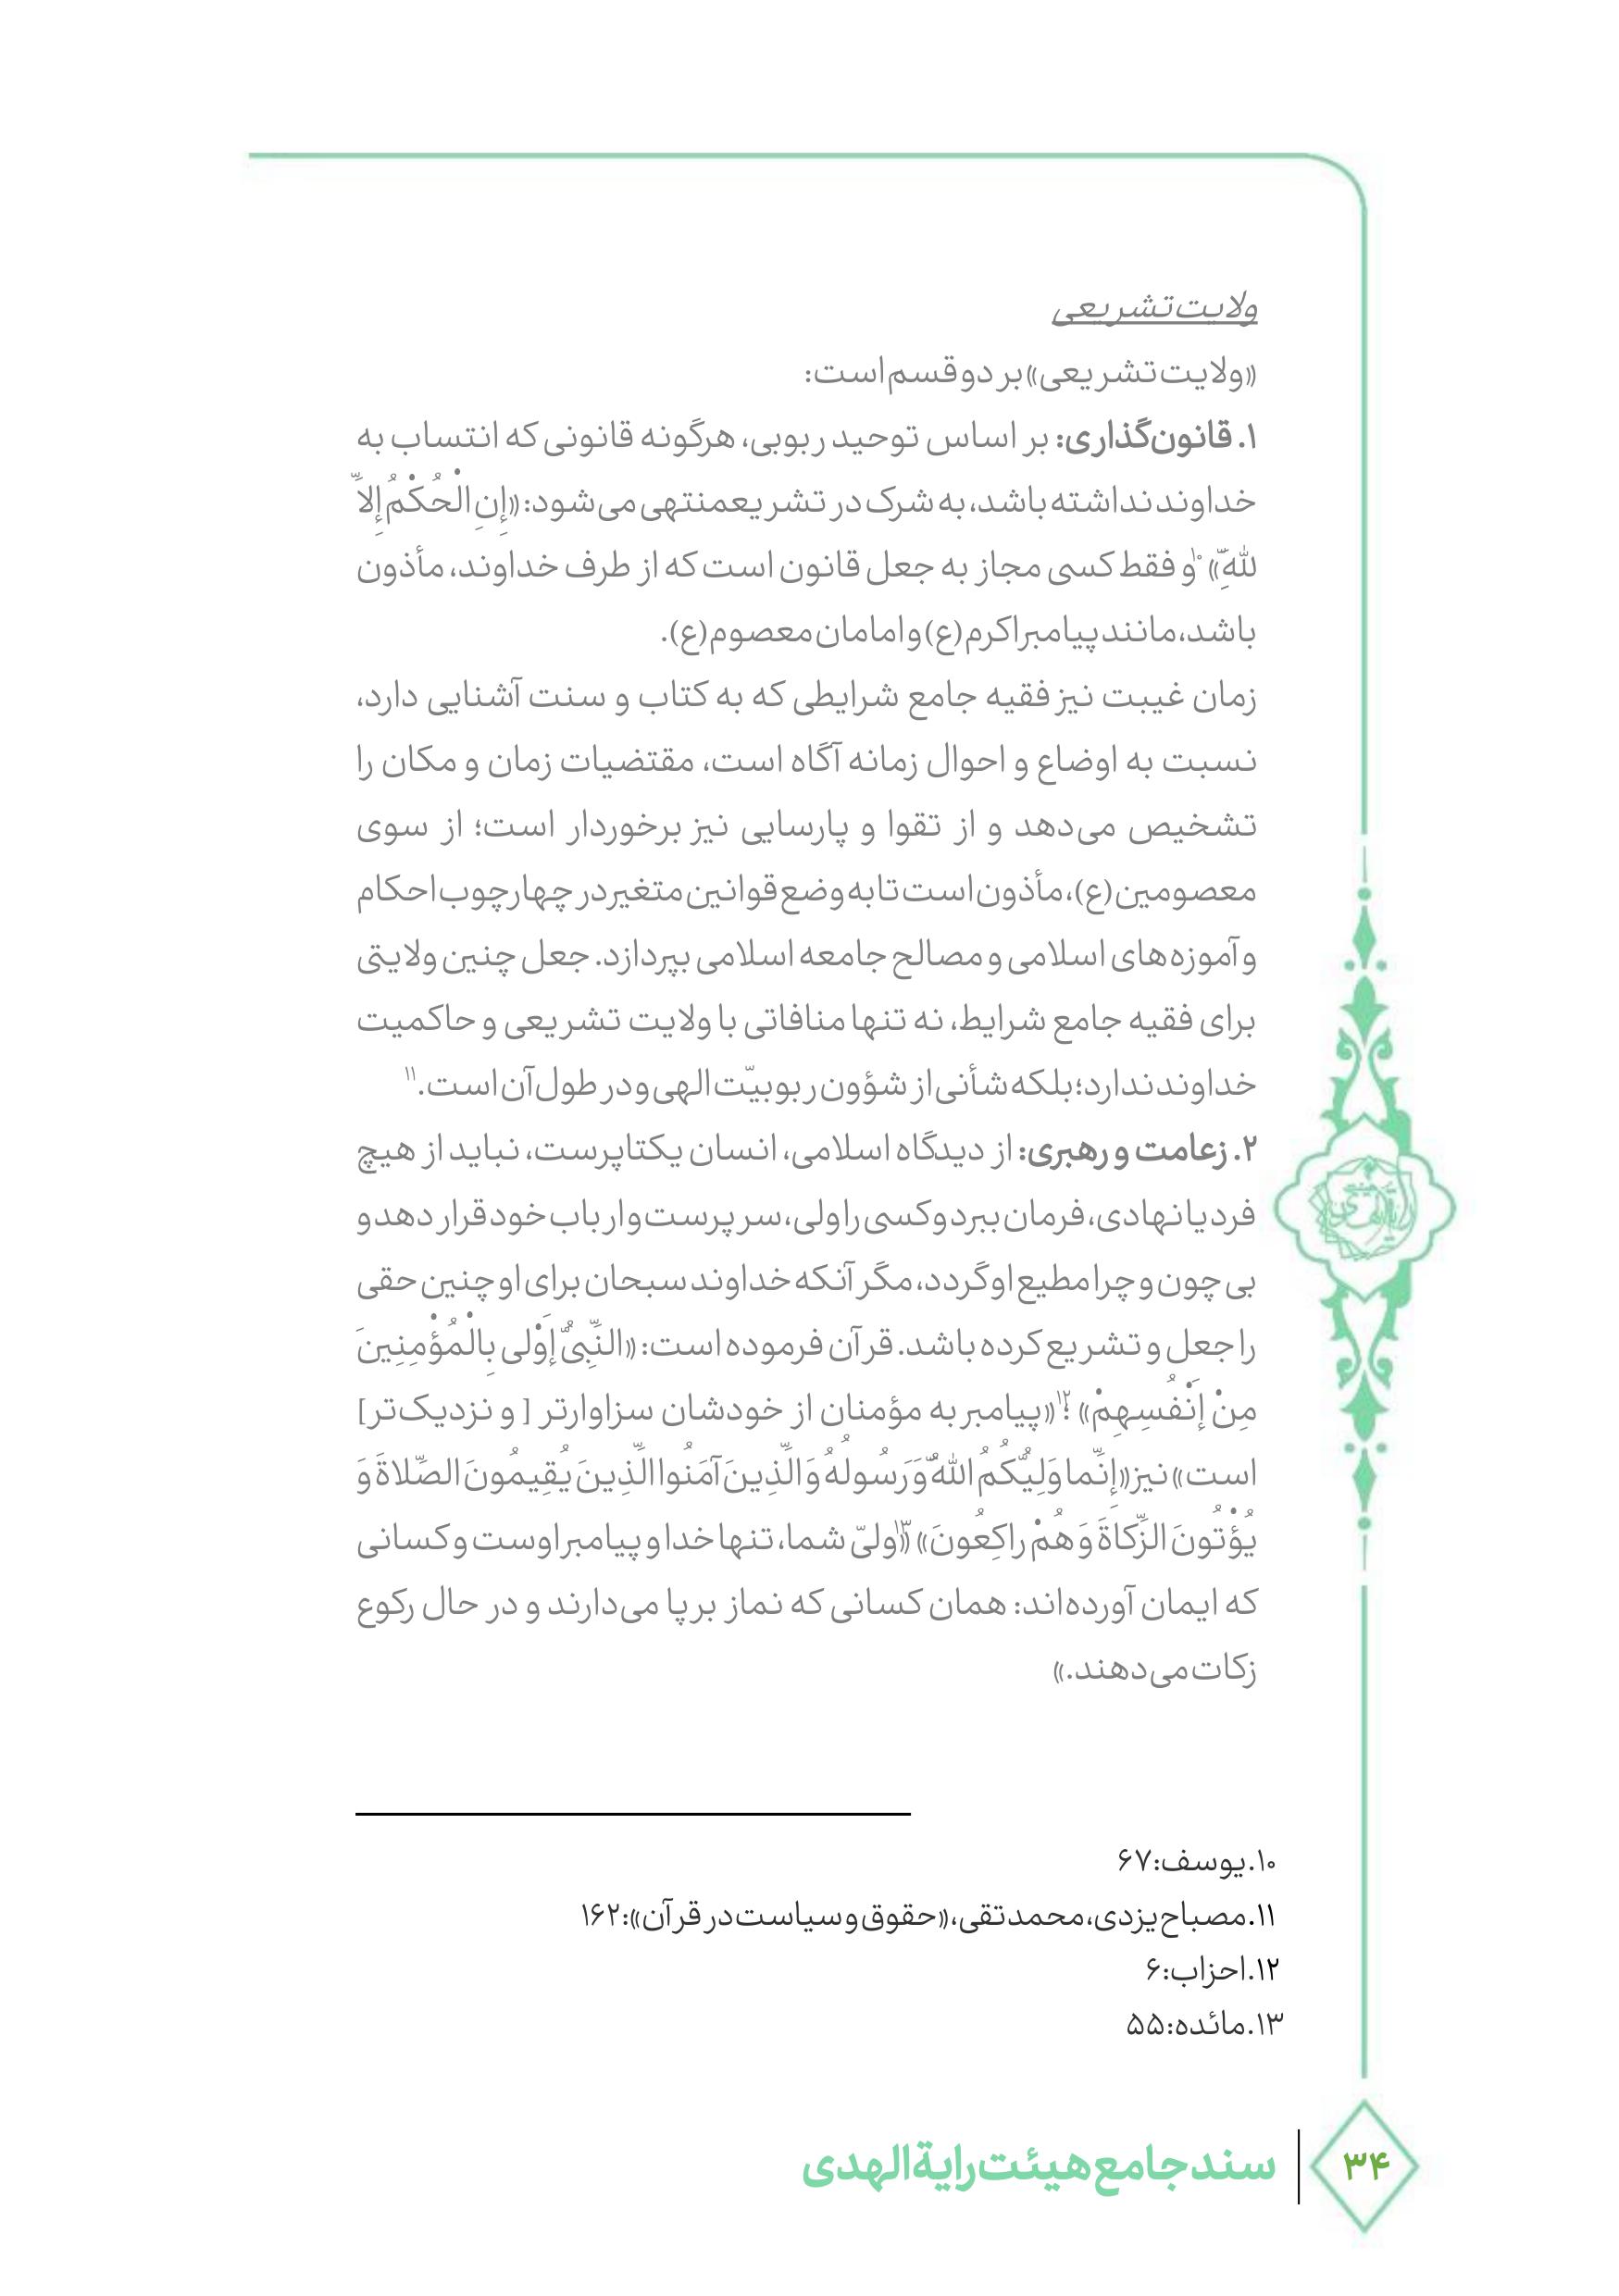 ولایت تشریعی
«ولایت تشریعی» بر دو قسم است:
۱. قانون‌گذاری: بر اساس توحید ربوبی، هرگونه قانونی که انتساب به
خداوند نداشته باشد، به شرک در تشریعمنتهی می‌شود: «إِنِ الْحُکْمُ إِلاَّ
للهِّ»۱۰ و فقط کسی مجاز به جعل قانون است که از طرف خداوند، مأذون
باشد، مانند پیامبر اکرم (ع) و امامان معصوم (ع).
زمان غیبت نیز فقیه جامع شرایطی که به کتاب و سنت آشنایی دارد،
نسبت به اوضاع و احوال زمانه آگاه است، مقتضیات زمان و مکان را
تشخیص می‌دهد و از تقوا و پارسایی نیز برخوردار است؛ از سوی
معصومین (ع)، مأذون است تا به وضع قوانین متغیر در چهارچوب احکام
و آموزه‌های اسلامی و مصالح جامعه اسلامی بپردازد. جعل چنین ولایتی
برای فقیه جامع شرایط، نه تنها منافاتی با ولایت تشریعی و حاکمیت
خداوند ندارد؛ بلکه شأنی از شؤون ربوبیّت الهی و در طول آن است.۱۱
۲. زعامت و رهبری: از دیدگاه اسلامی، انسان یکتاپرست، نباید از هیچ
فرد یا نهادی، فرمان ببرد و کسی را ولی، سرپرست و ارباب خود قرار دهد و
بی چون و چرا مطیع او گردد، مگر آنکه خداوند سبحان برای او چنین حقی
را جعل و تشریع کرده باشد. قرآن فرموده است: «النَّبِیُّ إَوْلی بِالْمُؤْمِنِینَ
مِنْ إَنْفُسِهِمْ»۱۲؛ «پیامبر به مؤمنان از خودشان سزاوارتر [ و نزدیک‌تر]
است» نیز «إِنَّما وَلِیُّکُمُ اللهُ وَ رَسُولُهُ وَ الَّذِینَ آمَنُوا الَّذِینَ یُقِیمُونَ الصَّلاةَ وَ
یُؤْتُونَ الزَّکاةَ وَ هُمْ راکِعُونَ»۱۳؛ «ولیّ شما، تنها خدا و پیامبر اوست و کسانی
که ایمان آورده‌اند: همان کسانی که نماز برپا می‌دارند و در حال رکوع
زکات می‌دهند.»
۱۰. یوسف: ۶۷
۱۱. مصباح یزدی، محمدتقی، «حقوق و سیاست در قرآن»: ۱۶۲
۱۲. احزاب: ۶
۱۳. مائده: ۵۵
۳۴ | سند جامع هیئت رایة الهدی